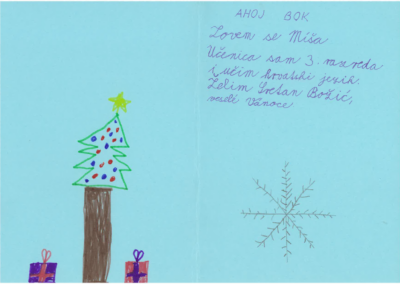 AHOJ BOK
Zovem se Míša
Učenica sam 3. razreda
i učim hrvatski jezik.
Želim Sretan Božić,
veselé Vánoce